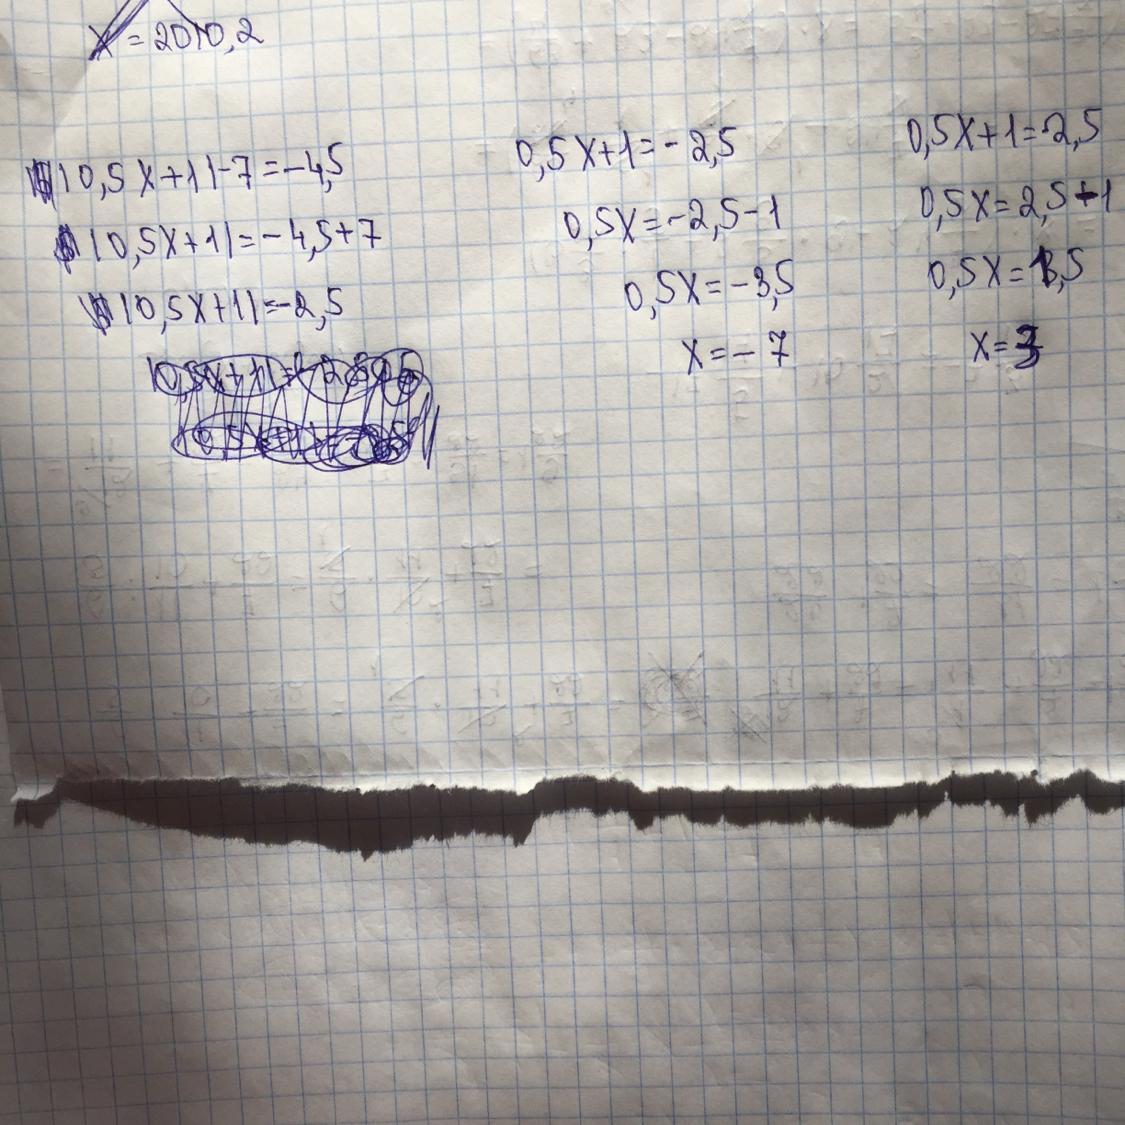 X = 2010,2
|0,5X+1|-7=-4,5
|0,5X+1|=-4,5+7
|0,5X+1|=-2,5
0,5X+1=-2,5
0,5X=-2,5-1
0,5X=-3,5
X=-7
0,5X+1=2,5
0,5X=2,5-1
0,5X=1,5
X=3